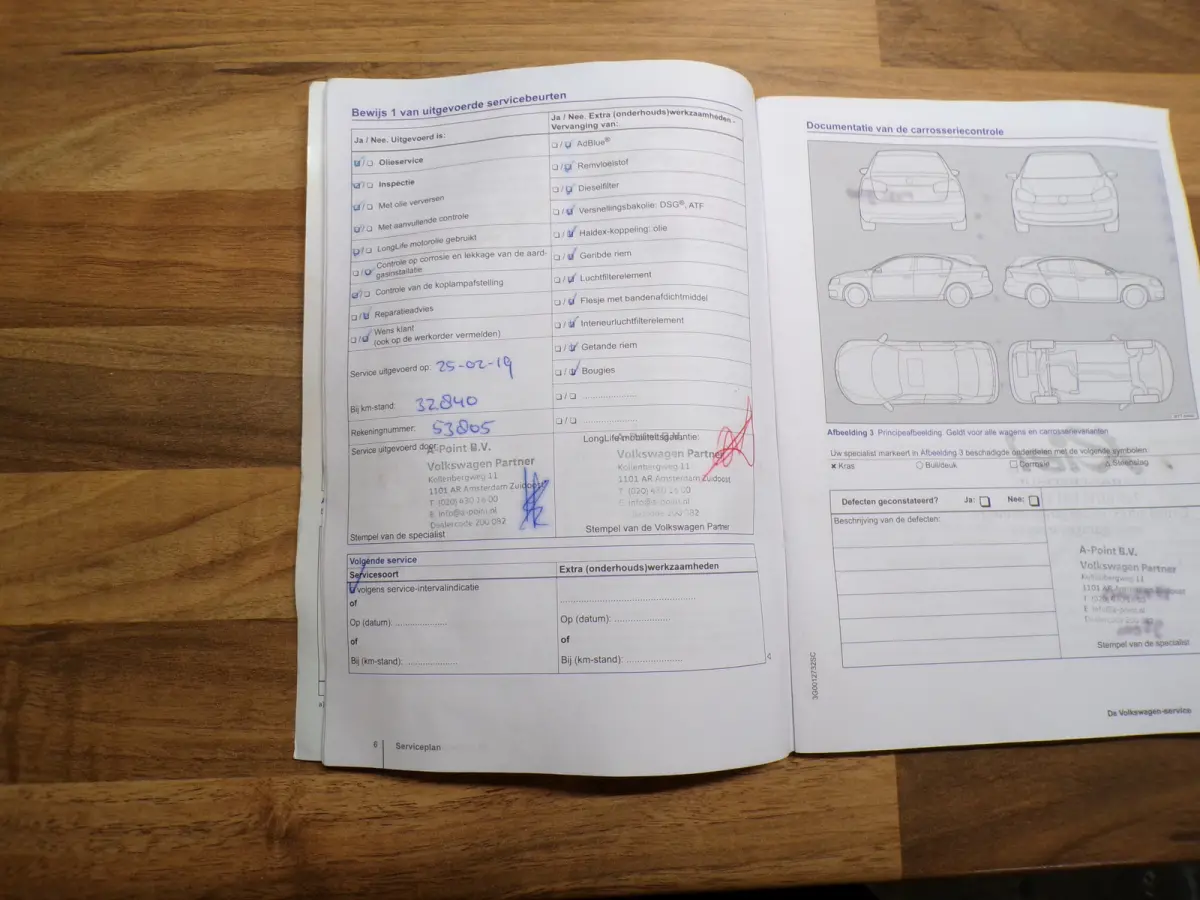 Bewijs 1 van uitgevoerde servicebeurten
Ja / Nee. Uitgevoerd is:
Olieservice
Inspectie
Met olie verversen
Met aanvullende controle
LongLife motorolie gebruikt
Controle op corrosie en lekkage van de aard-
gasinstallatie
Controle van de koplampafstelling
Reparatieadvies
Wens klant
(ook op de werkorder vermelden)
Service uitgevoerd op: 25-02-19
Bij km-stand: 32.840
Rekeningnummer: 53805
Service uitgevoerd door:
A-Point B.V.
Volkswagen Partner
Kollenbergweg 11
1101 AR Amsterdam Zuidoost
T (020) 430 16 00
E info@a-point.nl
Dealercode 200 082
Stempel van de specialist
Ja / Nee. Extra (onderhouds)werkzaamheden -
Vervanging van:
AdBlue®
Remvloeistof
Dieselfilter
Versnellingsbakolie: DSG®, ATF
Haldex-koppeling: olie
Geribde riem
Luchtfilterelement
Flesje met bandenafdichtmiddel
Interieurluchtfilterelement
Getande riem
Bougies
LongLife mobiliteitsgarantie:
A-Point B.V.
Volkswagen Partner
Kollenbergweg 11
1101 AR Amsterdam Zuidoost
T (020) 430 16 00
E info@a-point.nl
Dealercode 200 082
Stempel van de Volkswagen Partner
Volgende service
Servicesoort
volgens service-intervalindicatie
of
Op (datum): ....................
of
Bij (km-stand): ....................
Extra (onderhouds)werkzaamheden
Op (datum): ....................
of
Bij (km-stand): ....................
6 Serviceplan
Documentatie van de carrosseriecontrole
Afbeelding 3 Principeafbeelding. Geldt voor alle wagens en carrosserievarianten
Uw specialist markeert in Afbeelding 3 beschadigde onderdelen met de volgende symbolen:
Kras Buil/deuk Corrosie Steenslag
Defecten geconstateerd? Ja: Nee:
Beschrijving van de defecten:
A-Point B.V.
Volkswagen Partner
Kollenbergweg 11
1101 AR
E info@a-point.nl
Stempel van de specialist
3G0012732SC
De Volkswagen-service